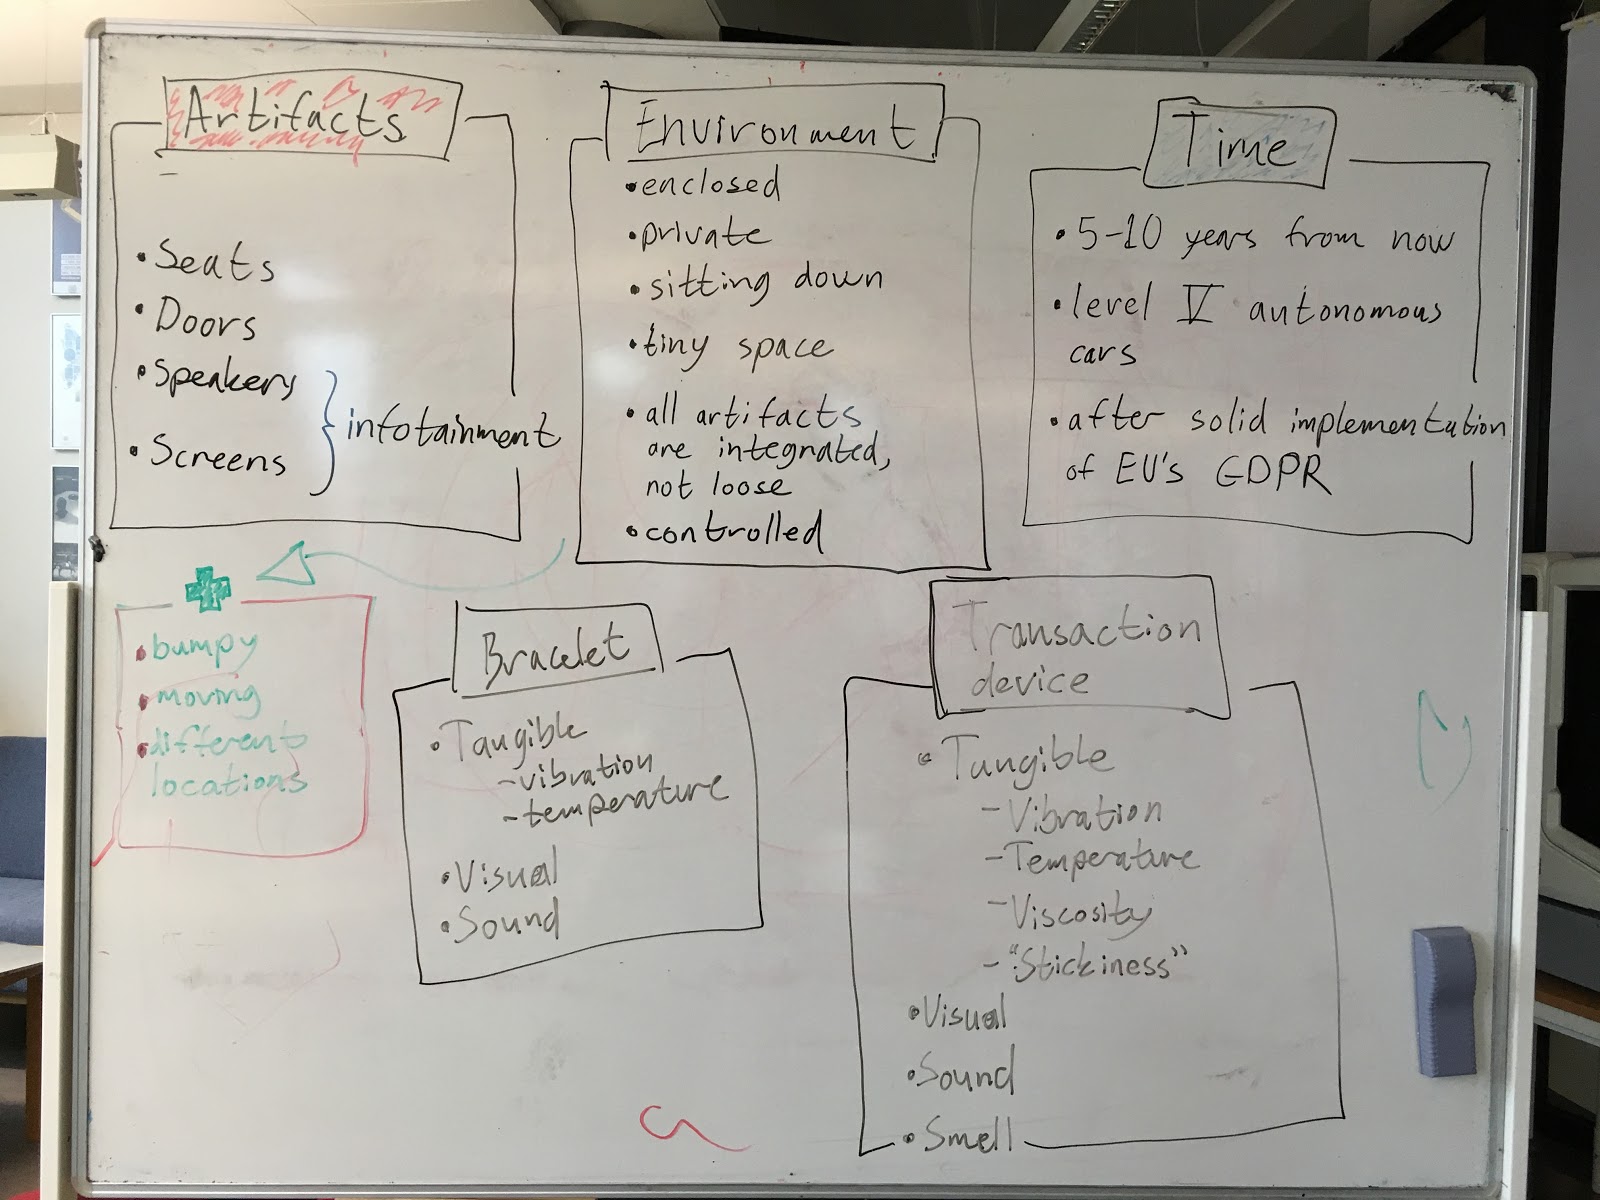 Artifacts
• Seats
• Doors
• Speakers
• Screens
infotainment
Environment
• enclosed
• private
• sitting down
• tiny space
• all artifacts
are integrated,
not loose
• controlled
Time
• 5-10 years from now
• level V autonomous
cars
• after solid implementation
of EU's GDPR
• bumpy
• moving
• different
locations
Bracelet
• Tangible
- vibration
- temperature
• Visual
• Sound
Transaction
device
• Tangible
- Vibration
- Temperature
- Viscosity
- "Stickiness"
• Visual
• Sound
• Smell